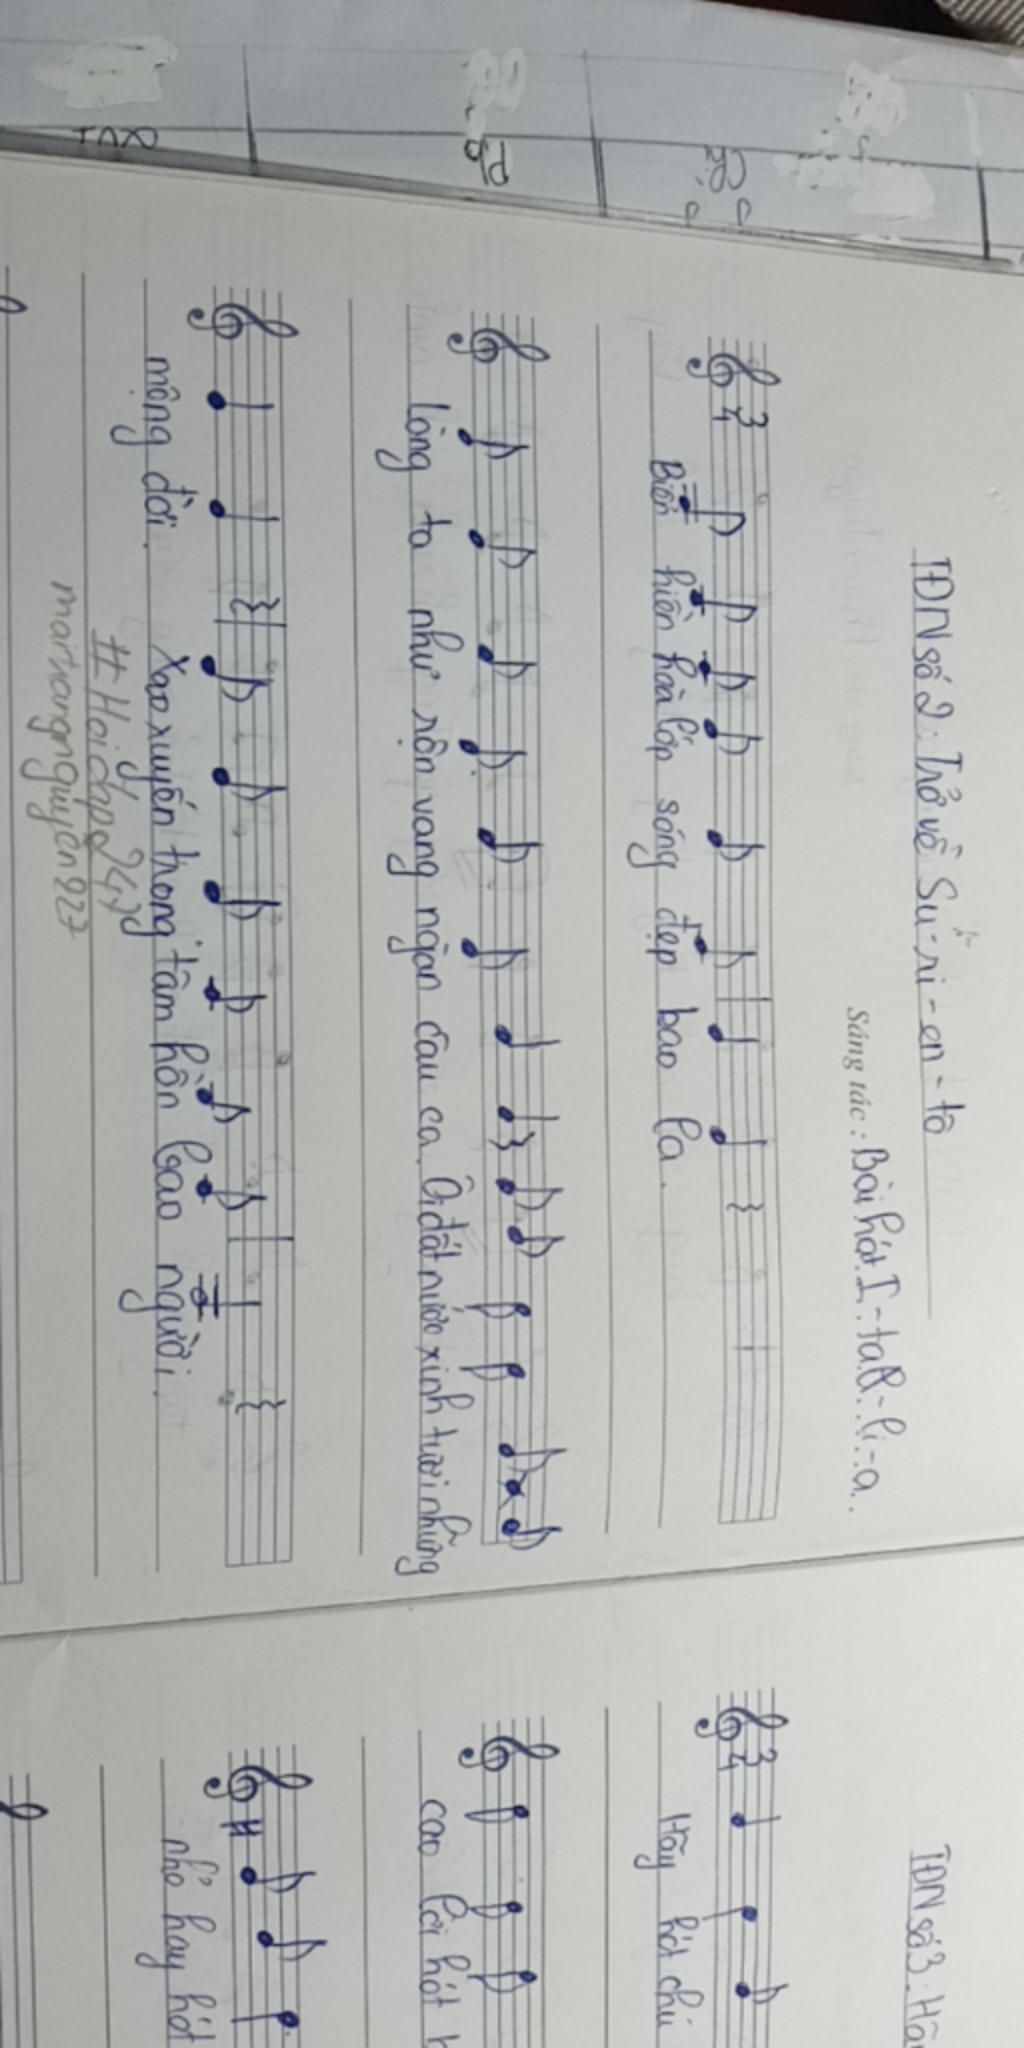 TĐN số 2: Trở về Su-ri-en-tô
Sáng tác: Bài hát I-ta-li-a.
3
4
Biển hiền hoà lớp sóng đẹp bao la.
lòng ta như rộn vang ngàn câu ca. Ôi đất nước xinh tươi những
mộng đời. Xao xuyến trong tâm hồn bao người.
#Hoidap247
maitrangnguyen227
TĐN số 3:
3
4
Hãy hót chú
cao lời hót
nhỏ hay hót